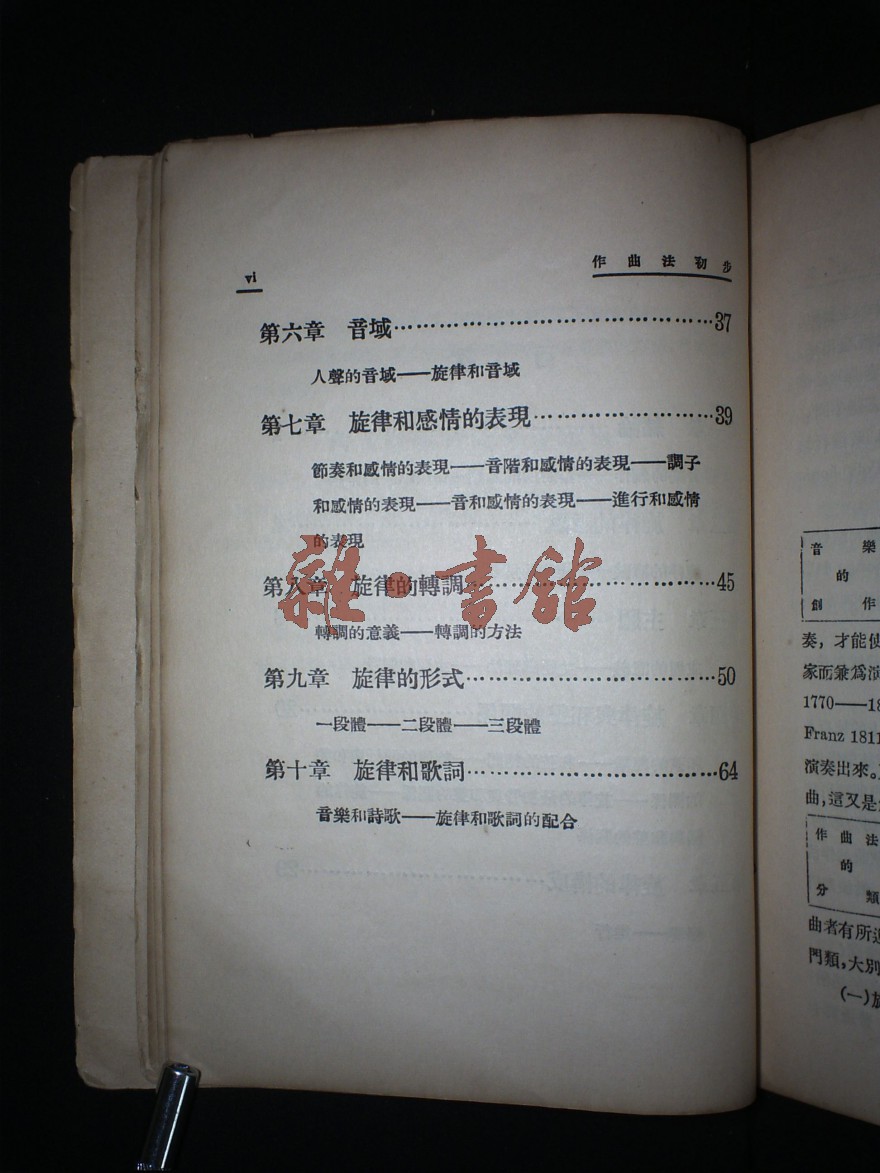 vi
作曲法初步
第六章 音域……………………………………37
人聲的音域——旋律和音域
第七章 旋律和感情的表現……………………39
節奏和感情的表現——音階和感情的表現——調子
和感情的表現——音和感情的表現——進行和感情
的表現
第八章 旋律的轉調……………………………45
轉調的意義——轉調的方法
第九章 旋律的形式……………………………50
一段體——二段體——三段體
第十章 旋律和歌詞……………………………64
音樂和詩歌——旋律和歌詞的配合
雜·書館
音樂
的
創作
奏，才能使
家而兼爲演
1770——18
Franz 1811
演奏出來。
曲，這又是
作曲法
的
分類
曲者有所
門類，大別
(一)旋